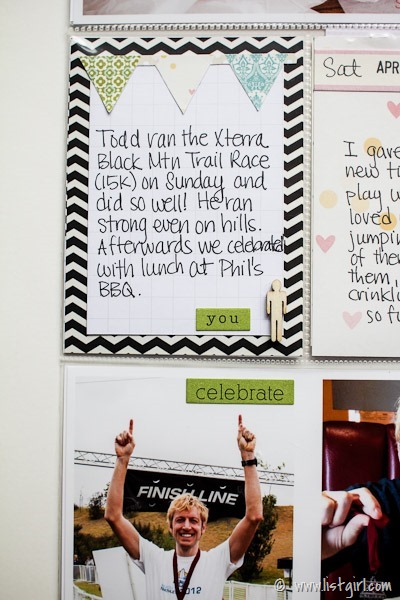 Todd ran the Xterra
Black Mtn Trail Race
(15K) on Sunday and
did so well! He ran
strong even on hills.
Afterwards we celebrated
with lunch at Phil's
BBQ.
you
Sat APR
I gave
new
play
loved
jumpin
of them
them,
crinkl
so fu
celebrate
FINISH LINE
2012
© www.listgirl.com